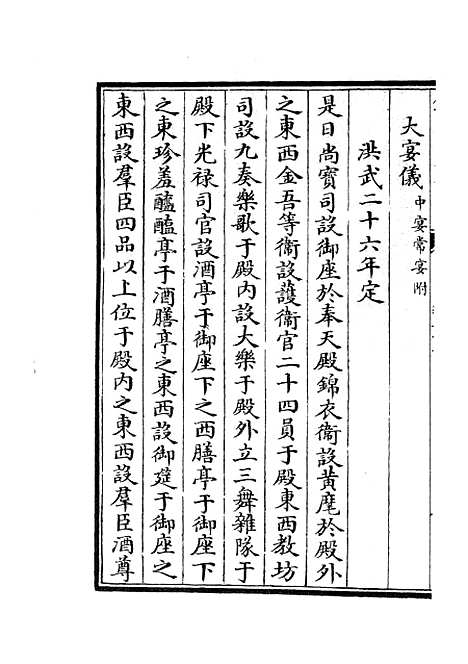 大宴儀中宴常宴附
洪武二十六年定
是日尚寶司設御座於奉天殿錦衣衞設黃麾於殿外
之東西金吾等衞設護衞官二十四員于殿東西教坊
司設九奏樂歌于殿内設大樂于殿外立三舞雜隊于
殿下光禄司官設酒亭于御座下之西膳亭于御座下
之東珍羞醯醢亭于酒膳亭之東西設御筵于御座之
東西設羣臣四品以上位于殿内之東西設羣臣酒尊